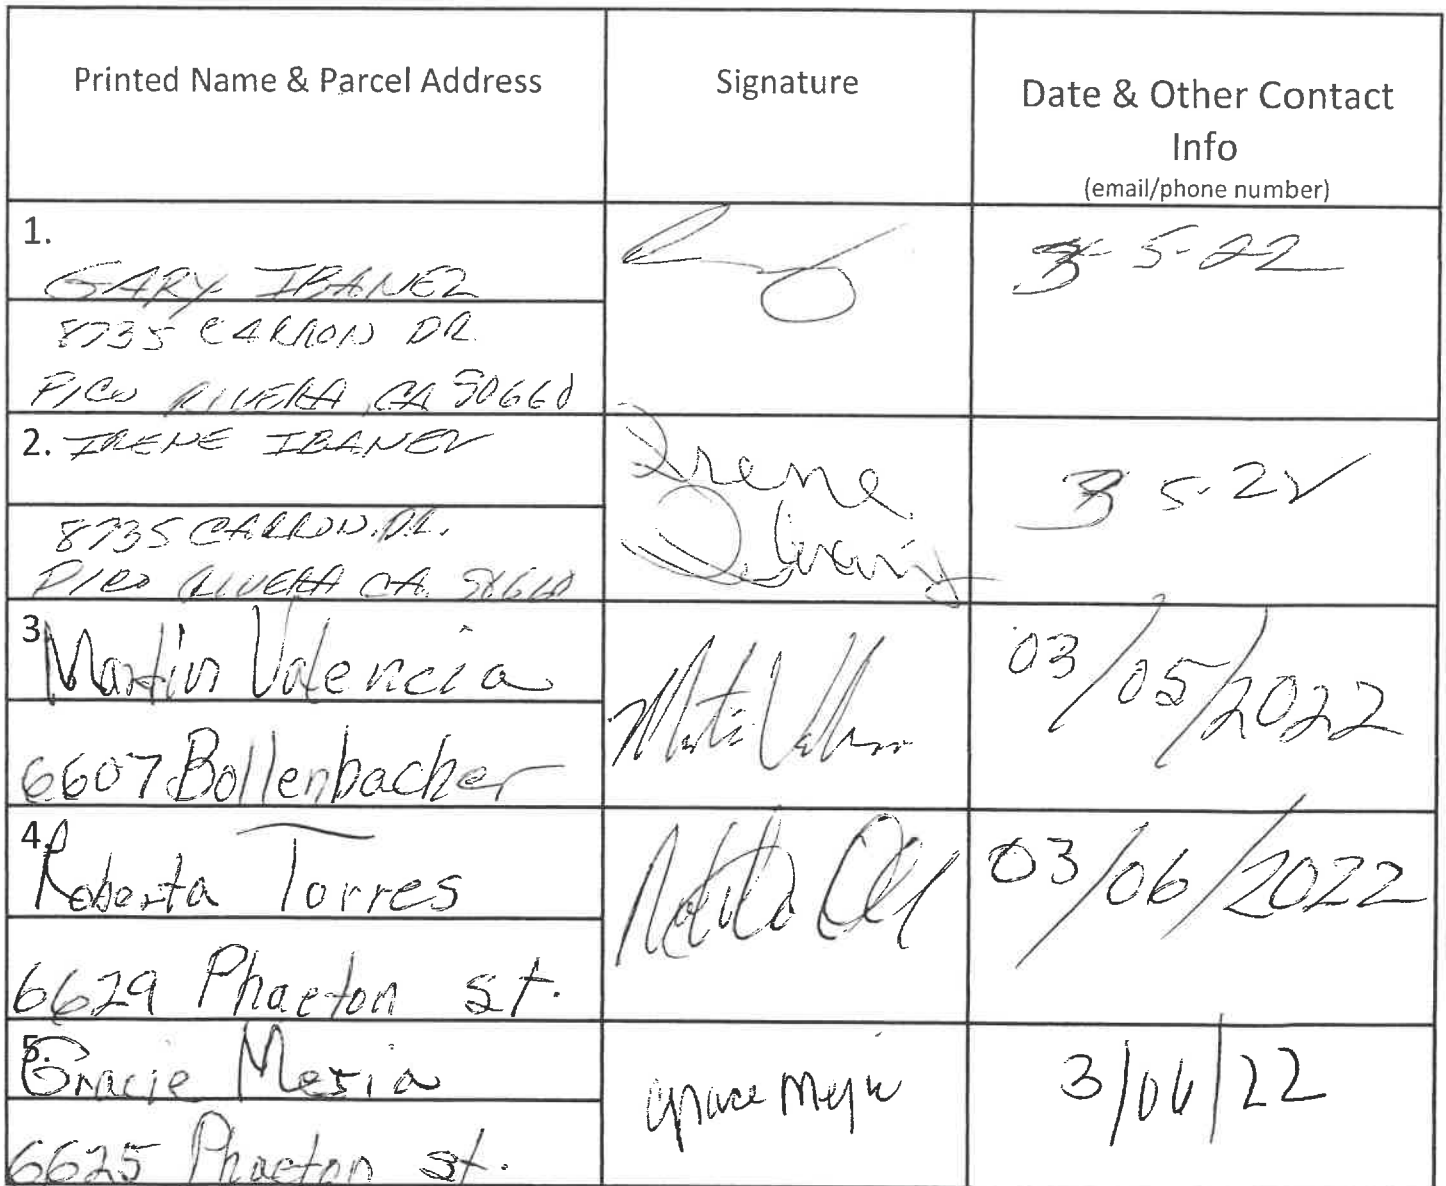 Printed Name & Parcel Address
Signature
Date & Other Contact
Info
(email/phone number)
1.
GARY IBANEZ
8735 CARRON DR.
PICO RIVERA, CA 90660
3-5-22
2. IRENE IBANEZ
8735 CARRON DR.
PICO RIVERA CA. 90660
Irene
3 5-22
3.
Martin Valencia
6607 Bollenbacher
03/05/2022
4.
Roberta Torres
6629 Phaeton st.
03/06/2022
5.
Gracie Mesia
6625 Phaeton st.
Grace Mejia
3/06/22